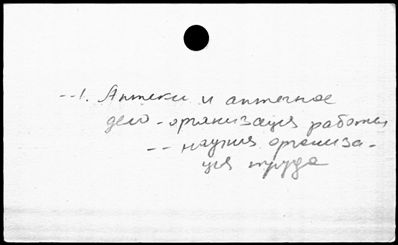 --1. Аптеки и аптечное
дело - организация работы
-- научная организа-
ция труда